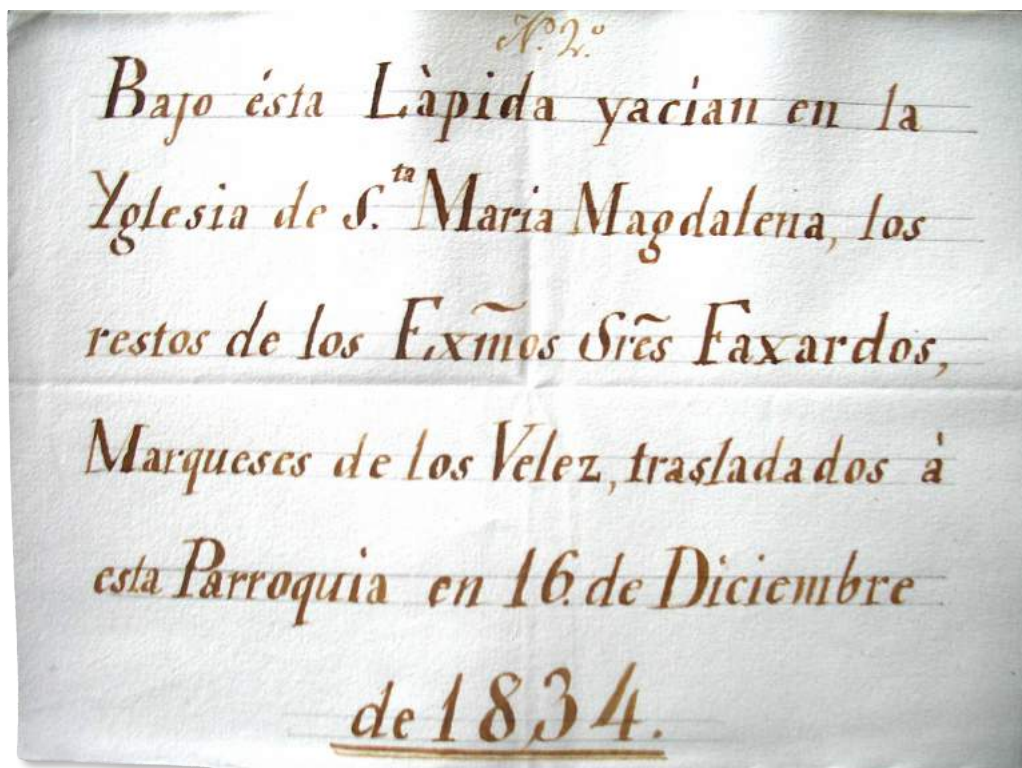 N.º 2.º
Bajo ésta Làpida yacian en la
Yglesia de S.ta Maria Magdalena, los
restos de los Exm̃os Sres̃ Faxardos,
Marqueses de los Velez, trasladados à
esta Parroquia en 16. de Diciembre
de 1834.